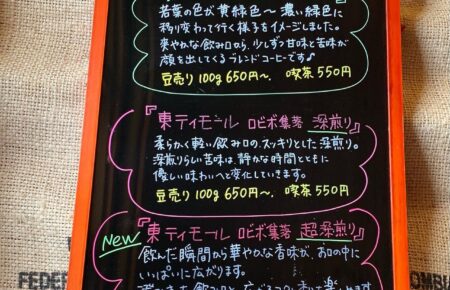 若葉の色が黄緑色〜濃い緑色に
移り変わって行く様子をイメージしました。
爽やかな飲み口から、少しずつ甘味と苦味が
顔を出してくるブレンドコーヒーです♪
豆売り 100g 650円〜. 喫茶 550円
『東ティモール ロビボ集落 深煎り』
柔らかく軽い飲み口の、スッキリとした深煎り。
深煎りらしい苦味は、静かな時間とともに
優しい味わいへと変化していきます。
豆売り 100g 650円〜. 喫茶 550円
NEW『東ティモール ロビボ集落 超深煎り』
飲んだ瞬間から華やかな香味が、お口の中に
いっぱいに広がります。
FEDER
OMBIA